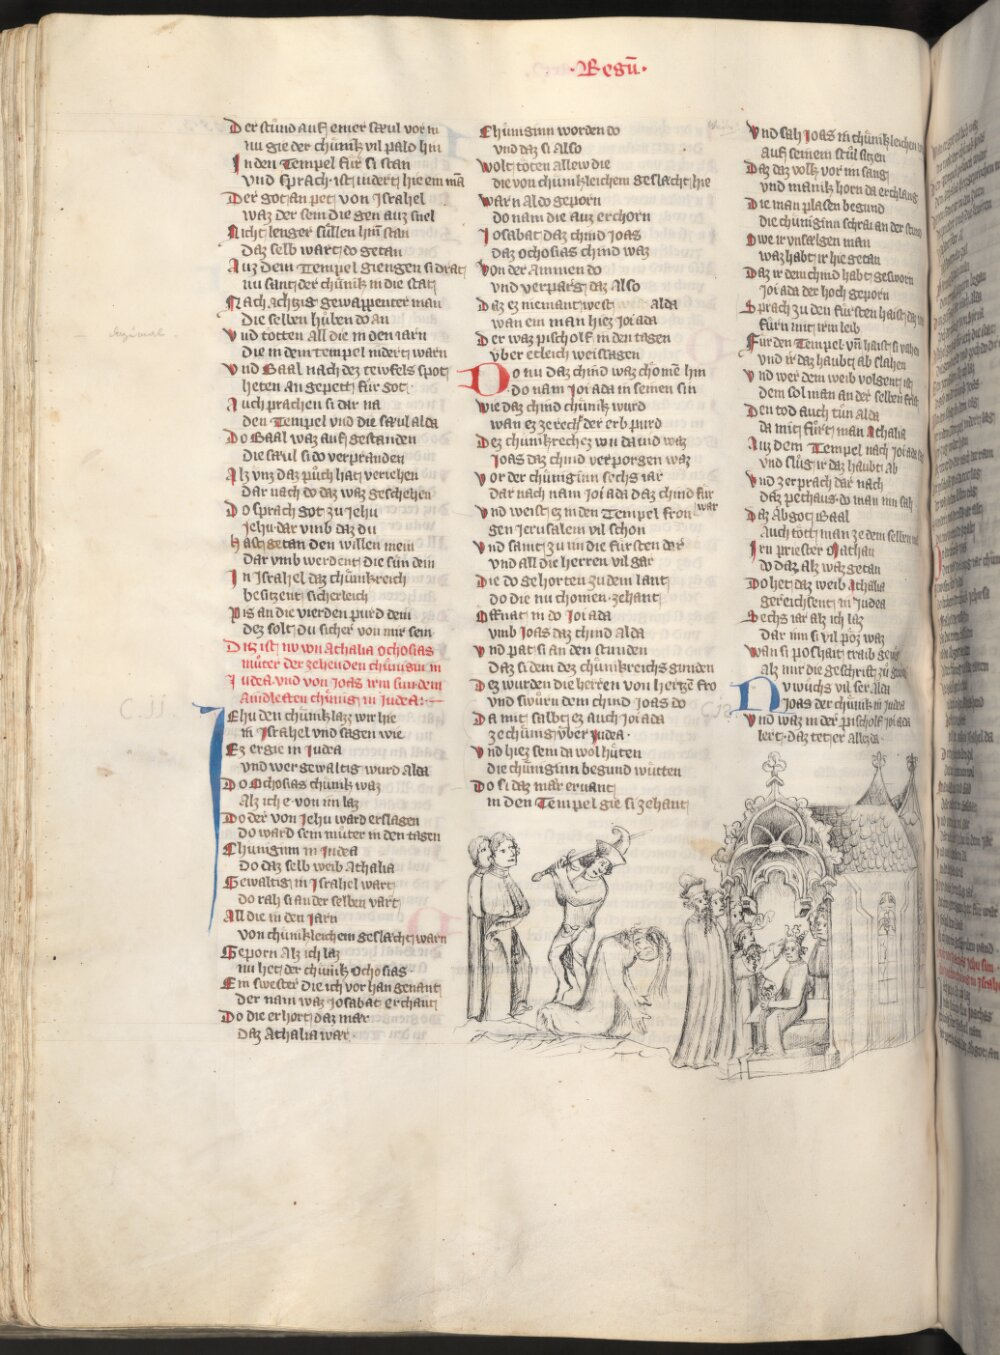 ·Regū·
Der stůnd auf einer sæul vor in
nu gie der chůnik vil pald hin
In den Tempel für si stan
vnd sprach· ist indert hie ein mā
Der got an pet von Israhel
waz der sein die gen auz snel
Nicht lenger sullen hīn stan
daz selb wart do getan
Auz dem Tempel giengen si drat
nu sant der chůnik in die stat
Nach achtzig gewappenter man
die selben hůben do an
Vnd totten all die in den iarn
die in dem tempel indert warn
Vnd Baal nach dez tewfels spot
heten an gepett für got·
Auch prachen si dar na
den Tempel vnd die sæul alda
Do Baal waz auf gestanden
die sæul si do verpranden
Alz vnz daz půch hat veriehen
dar nach do daz waz geschehen
Do sprach got zu Jehu
Jehu dar vmb daz du
Hast getan den willen mein
dar vmb werdent die sün dein
In Israhel daz chůnkreich
besitzent sicherleich
Pis an die vierden purd dein
dez solt du sicher von mir sein
Ditz ist nu von Athalia Ochosias
můter der zehenden chůnigin in
Judea vnd von Joas irm sun dem
aindleften chůnig in Judea:—
Jehu den chůnik lazz wir hie
in Israhel vnd sagen wie
Ez ergie in Judea
vnd wer gewaltig wurd alda
Do Ochosias chůnik waz
Alz ich e von im laz
Do der von Jehu ward erslagen
do ward sein můter in den tagen
Chuniginn in Judea
do daz selb weib Athalia
Gewaltig in Israhel wart
do rah si an der selben vart
All die in den Jarn
von chůnikleichem geslæcht warn
Geporn alz ich laz
nu het der chůnik Ochosias·
Ein swester die ich vor han genant
der nam waz Josabat erchant
Do die erhort daz mær
daz Athalia wær·
Chůniginn worden do
vnd daz si also
Wolt toten allew die
die von chůnikleichem geslæcht hie
Warn aldo geporn
do nam die auz erchorn
Josabat daz chind Joas
daz ochosias chind waz
Von der Ammen do
vnd verparg daz also
Daz ez niemant west alda
wan ein man hiez Joiada
Der waz pischolf in den tagen
vber etleich weissagen
Do nu daz chind waz chomē hin
do nam Joiada in seinen sin
Wie daz chind chůnik wurd
wan ez zerecht der erb purd
Dez chůnikreichez von dauid waz
Joas daz chind verporgen waz
Vor der chůniginn sechs iar
dar nach nam Joiada daz chind für
war
Vnd weist ez in den Tempel fron
gen Jerusalem vil schon
Vnd samt zu im die fürsten dar
vnd all die herren vil gar
Die do gehorten zu dem lant
do die nu chomen· zehant
Offnat in do Joiada
vmb Joas daz chind alda
Vnd pat si an den stunden
daz si dem dez chůnikreichs gunden
Dez wurden die herren von hertzē fro
vnd swůrn dem chind Joas do
Da mit salbt ez auch Joiada
ze chůnig vber Judea·
Vnd hiez sein da wol hůten
die chůniginn begund wůtten
Do si daz mær ervant
in den Tempel gie si zehant
Vnd sah Joas in chůnikleichen
auf seinem stůl sitzen
Daz daz volk vor im sang
vnd manik horn da erchlang
Die man plasen begund
die chůniginn schrai an der stund
O we ir vnsælgen man
waz habt ir hie getan
Daz ir dem chind habt gesworn
Joiada der hoch geporn
Sprach zu den fürsten haist
fürn mit irm leib
Für den Tempel vn̄ haist si vahen
vnd ir daz haubt ab slahen
Vnd wer dem weib volgent ist
dem sol man an der selben frist
Den tod auch tůn alda
da mit fürt man Athalia
Auz dem Tempel nach Joiada
vnd slůg ir daz haubt ab
Vnd zerprach dar nach
daz pethaus· do man inn sah
Daz Abgot Baal
Auch tött man ze dem selben
Irn priester Mathan
do daz alz waz getan
Do het daz weib Athalia
gereichsent in Judea
Sechs iar alz ich laz
Dar inn si vil pöz waz
Wan si poshait traib genug
Alz mir die geschrift zu
Nu wůchs vil ser alda
Joas der chůnik in Juda
Vnd waz in der pischolf Joiada
lert· daz tet er allez da·